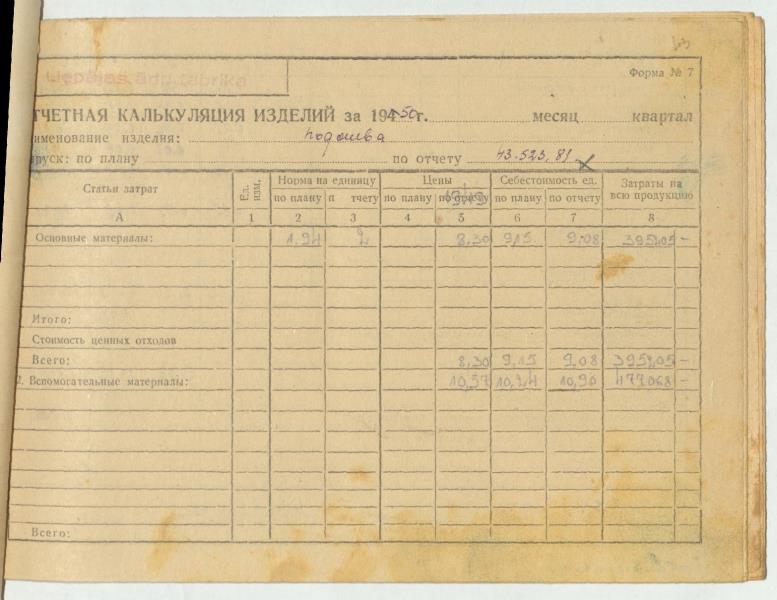 Liepājas ādu fabrika
Форма № 7
ТЧЕТНАЯ КАЛЬКУЛЯЦИЯ ИЗДЕЛИЙ за 1950г. месяц квартал
именование изделия: подошва
пуск: по плану по отчету 43.523,81
Статьи затрат Ед. изм. Норма на единицу Цены Себестоимость ед. Затраты на всю продукцию
по плану п тчету по плану по отчету по плану по отчету
А 1 2 3 4 5 6 7 8
Основные материалы: 1,94 2 8,30 9,15 9,08 395205 -
Итого:
Стоимость ценных отходов
Всего: 8,30 9,15 9,08 395205 -
2. Вспомогательные материалы: 10,57 10,24 10,96 477068 -
Всего: